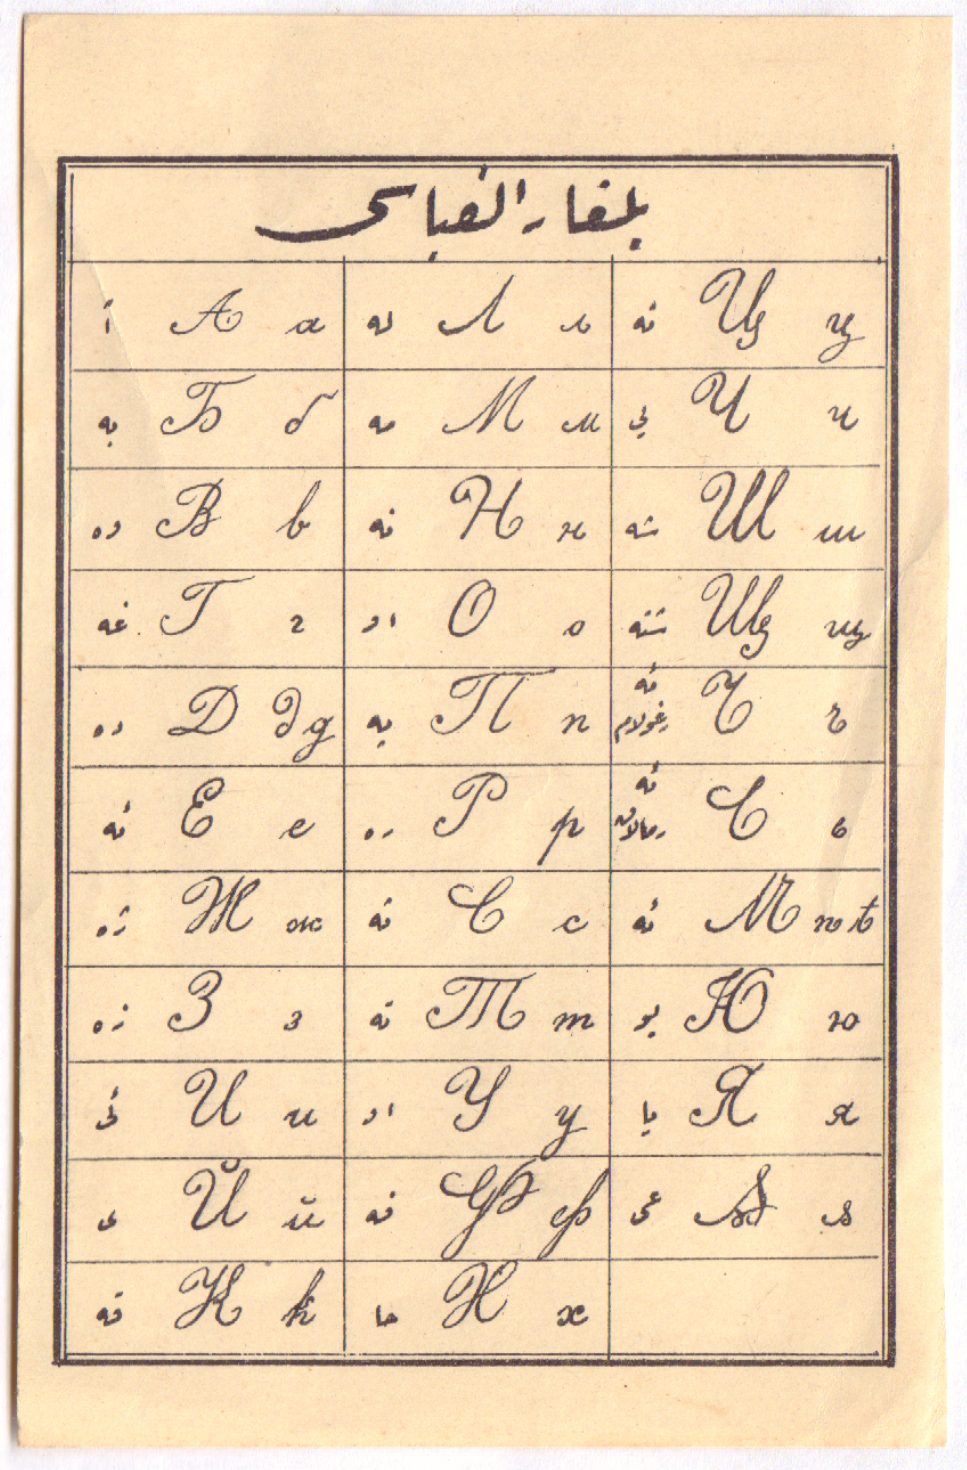 بلغار الفباسی
آ А а له Л л تە Ц ц
به Б б مه М м چی Ч ч
وه В в نه Н н شه Ш ш
غه Г г او О о شته Щ щ
ده Д д д په П п ئه Ъ ъ
ئه Е е ره Р р ئه Ь ь
ژه Ж ж سه С с ئه Ѣ ѣ ѣ
زه З з ته Т т یو Ю ю
ئی И и او У у یا Я я
ی Й й فه Ф ф Ѫ ѫ
قه К к خا Х х